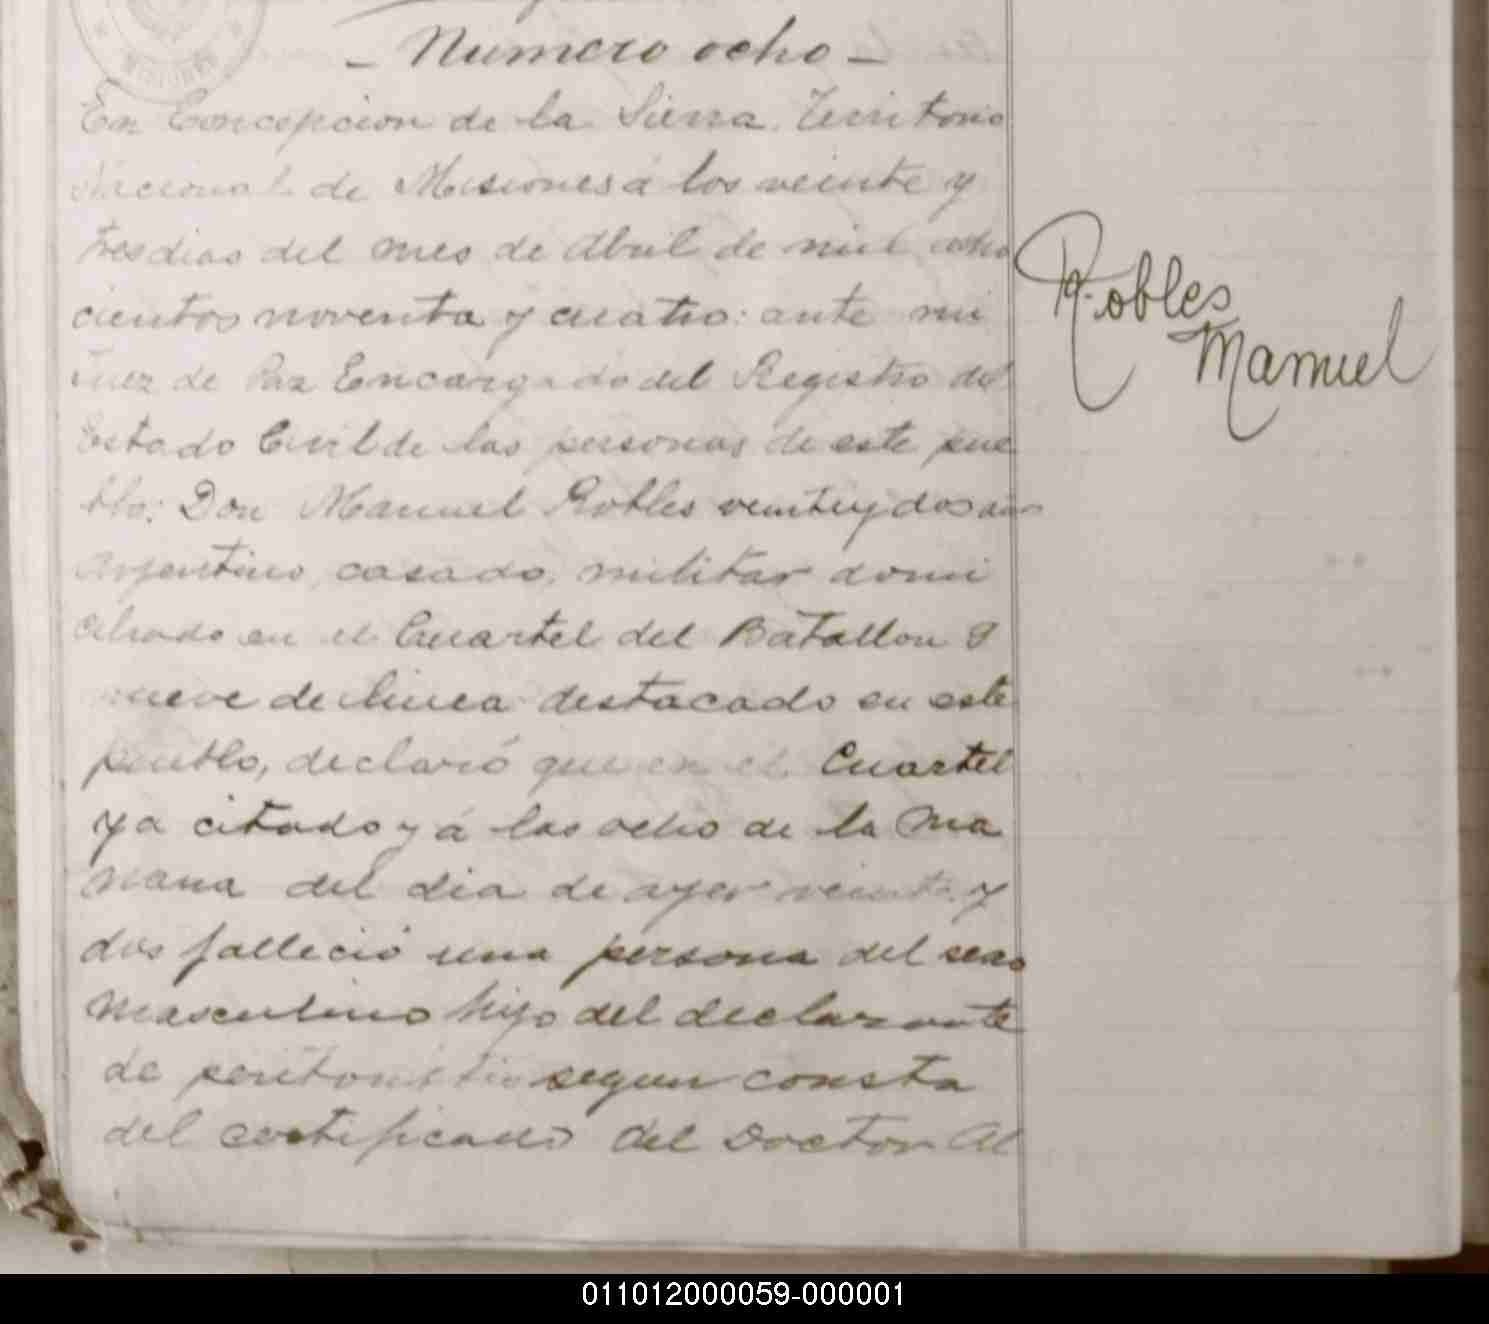 MISIONES
- Numero ocho -
En Concepcion de la Sierra, Territorio
Nacional de Misiones á los veinte y
tres dias del mes de Abril de mil ocho
cientos noventa y cuatro: ante mi
Juez de Paz Encargado del Registro del
Estado Civil de las personas de este pue
blo: Don Manuel Robles veinte y dos años
Argentino, casado, militar domi
ciliado en el Cuartel del Batallon 9
nueve de linea destacado en este
pueblo, declaró que en el Cuartel
ya citado y á las ocho de la ma
nana del dia de ayer veinte y
dos falleció una persona del sexo
masculino hijo del declarante
de peritonitis segun consta
del certificado del Doctor Al
Robles
Manuel
011012000059-000001